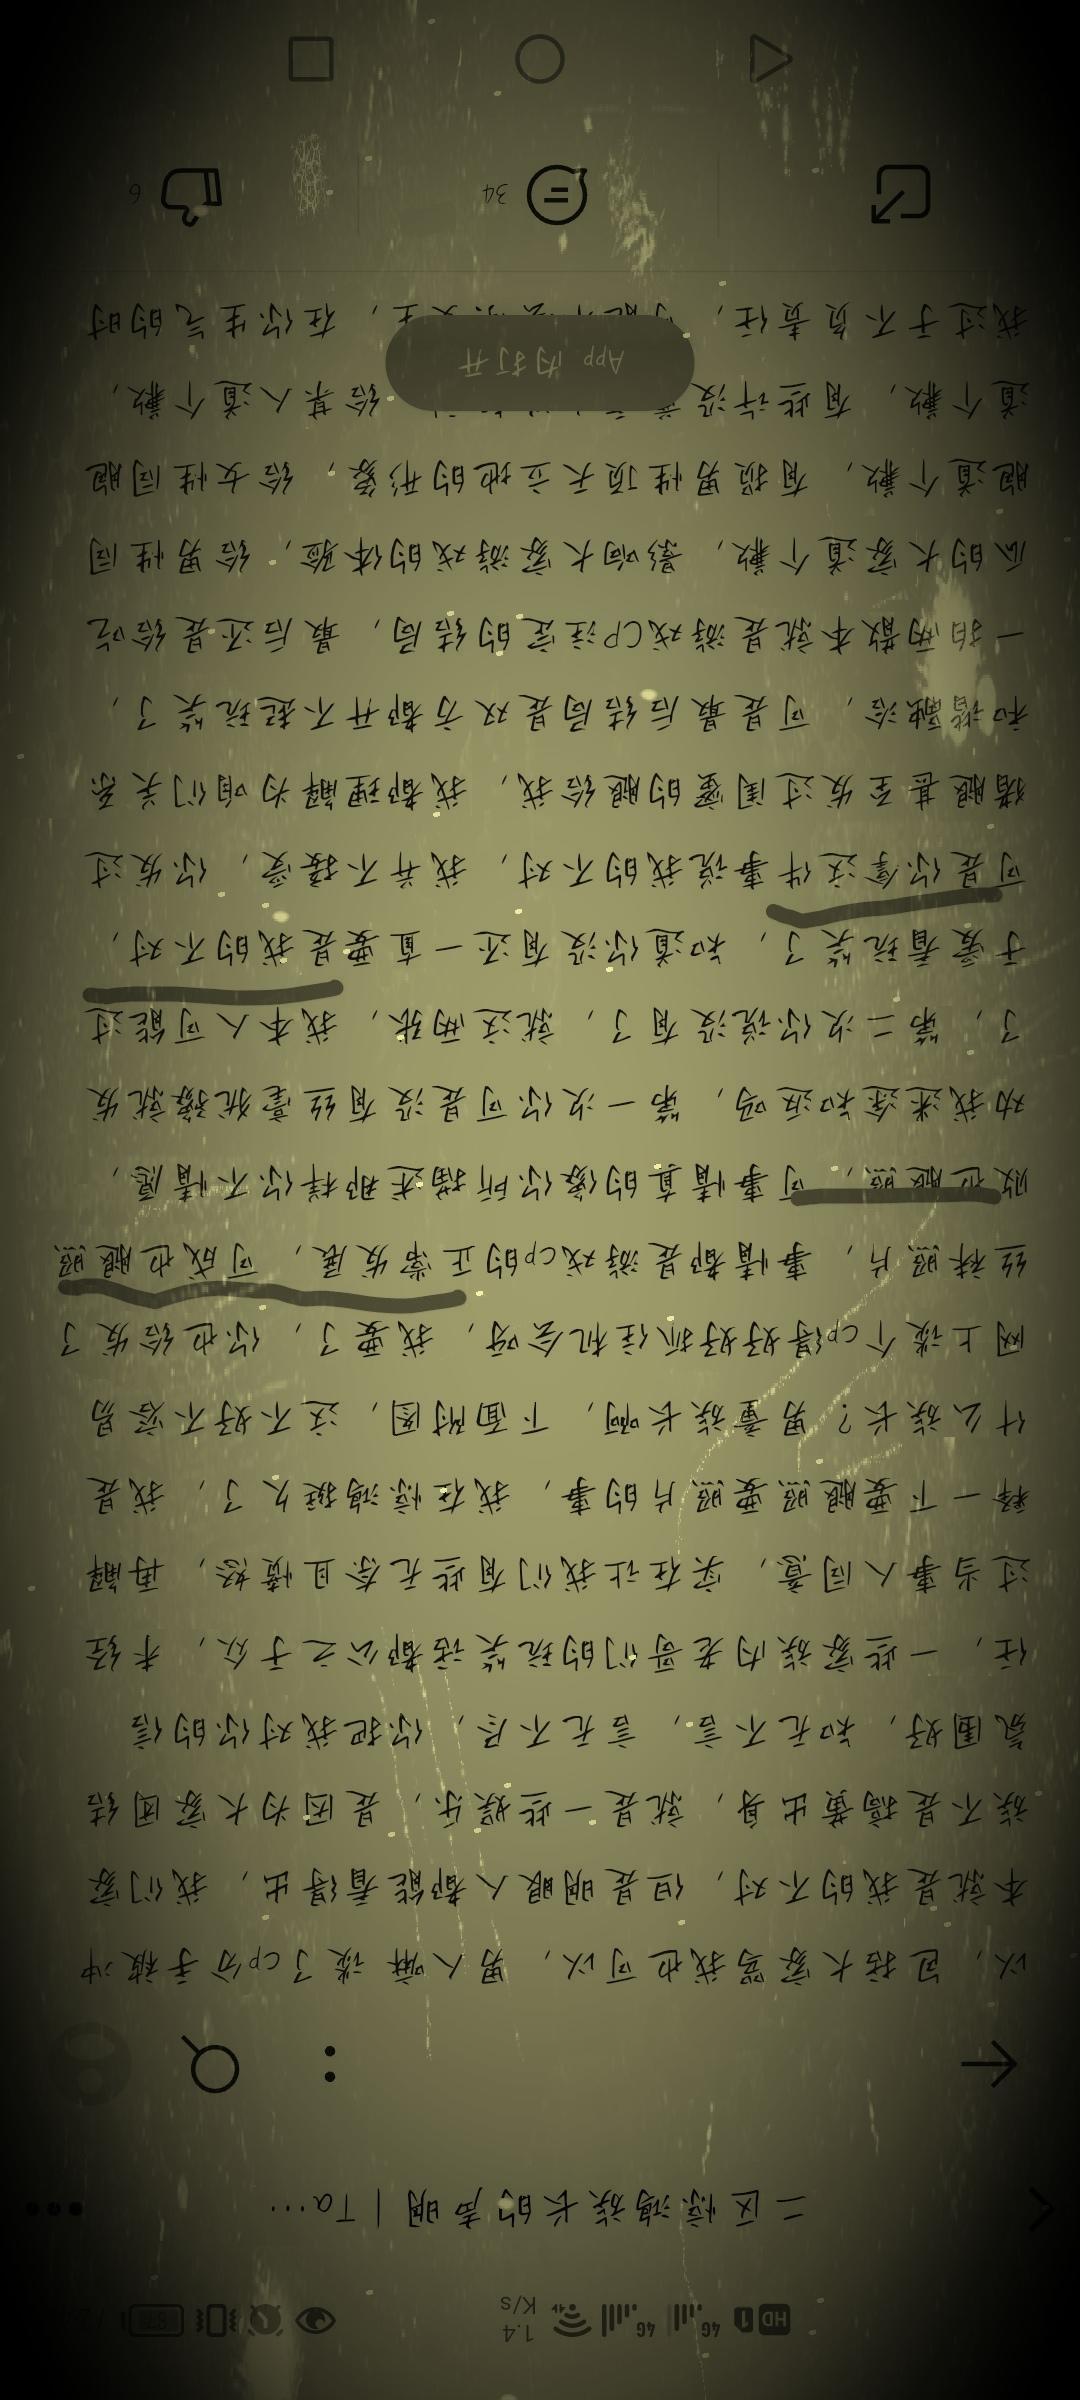 HD 1 4G 4G 1.4 K/s
二区惊鸿族长的声明 | Ta...
以，包括大家骂我也可以，男人嘛 谈了cp分手被冲
本就是我的不对，但是明眼人都能看得出，我们家
族不是搞黄出身，就是一些娱乐，是因为大家团结
氛围好，知无不言，言无不尽，你把我对你的信
任，一些家族内老哥们的玩笑话都公之于众，未经
过当事人同意，实在让我们有些无奈且愤怒，再解
释一下要腿照要照片的事，我在惊鸿挺久了，我是
什么族长？男童族长啊，下面附图，这不好不容易
网上谈个cp得好好抓住机会呀，我要了，你也给发了
丝袜照片，事情都是游戏cp的正常发展，可成也腿照
败也腿照，可事情真的像你所描述那样你不情愿，
劝我迷途知返吗，第一次你可是没有丝毫犹豫就发
了，第二次你说没有了，就这两张，我本人可能过
于爱看玩笑了，知道你没有还一直要是我的不对，
可是你拿这件事说我的不对，我并不接受，你发过
猪腿甚至发过闺蜜的腿给我，我都理解为咱们关系
和谐融洽，可是最后结局是双方都开不起玩笑了，
一拍两散本就是游戏CP注定的结局，最后还是给吃
瓜的大家道个歉，影响大家游戏的体验，给男性同
胞道个歉，有损男性顶天立地的形象，给女性同胞
道个歉，有些许没 给某人道个歉，
App 内打开
我过于不负责任， 在你生气的时
34 6